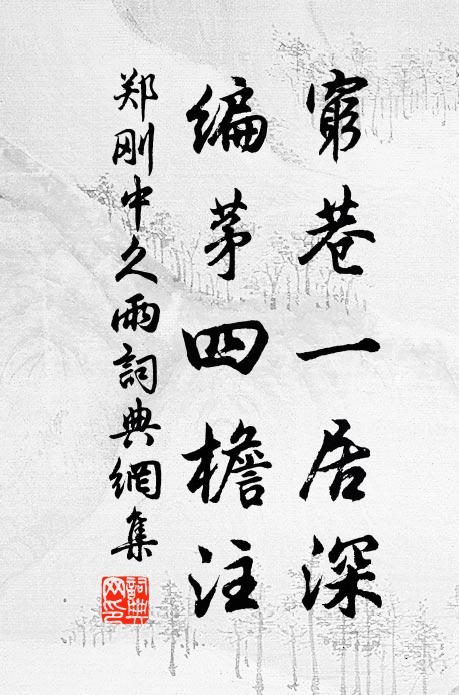 窮巷一居深
編茅四檐注
郑刚中久雨詞典網集
詞典